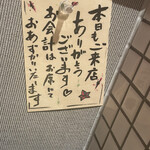 本日もご来店
ありがとう
ございます♡
お会計はお席にて
おあずかりいたします